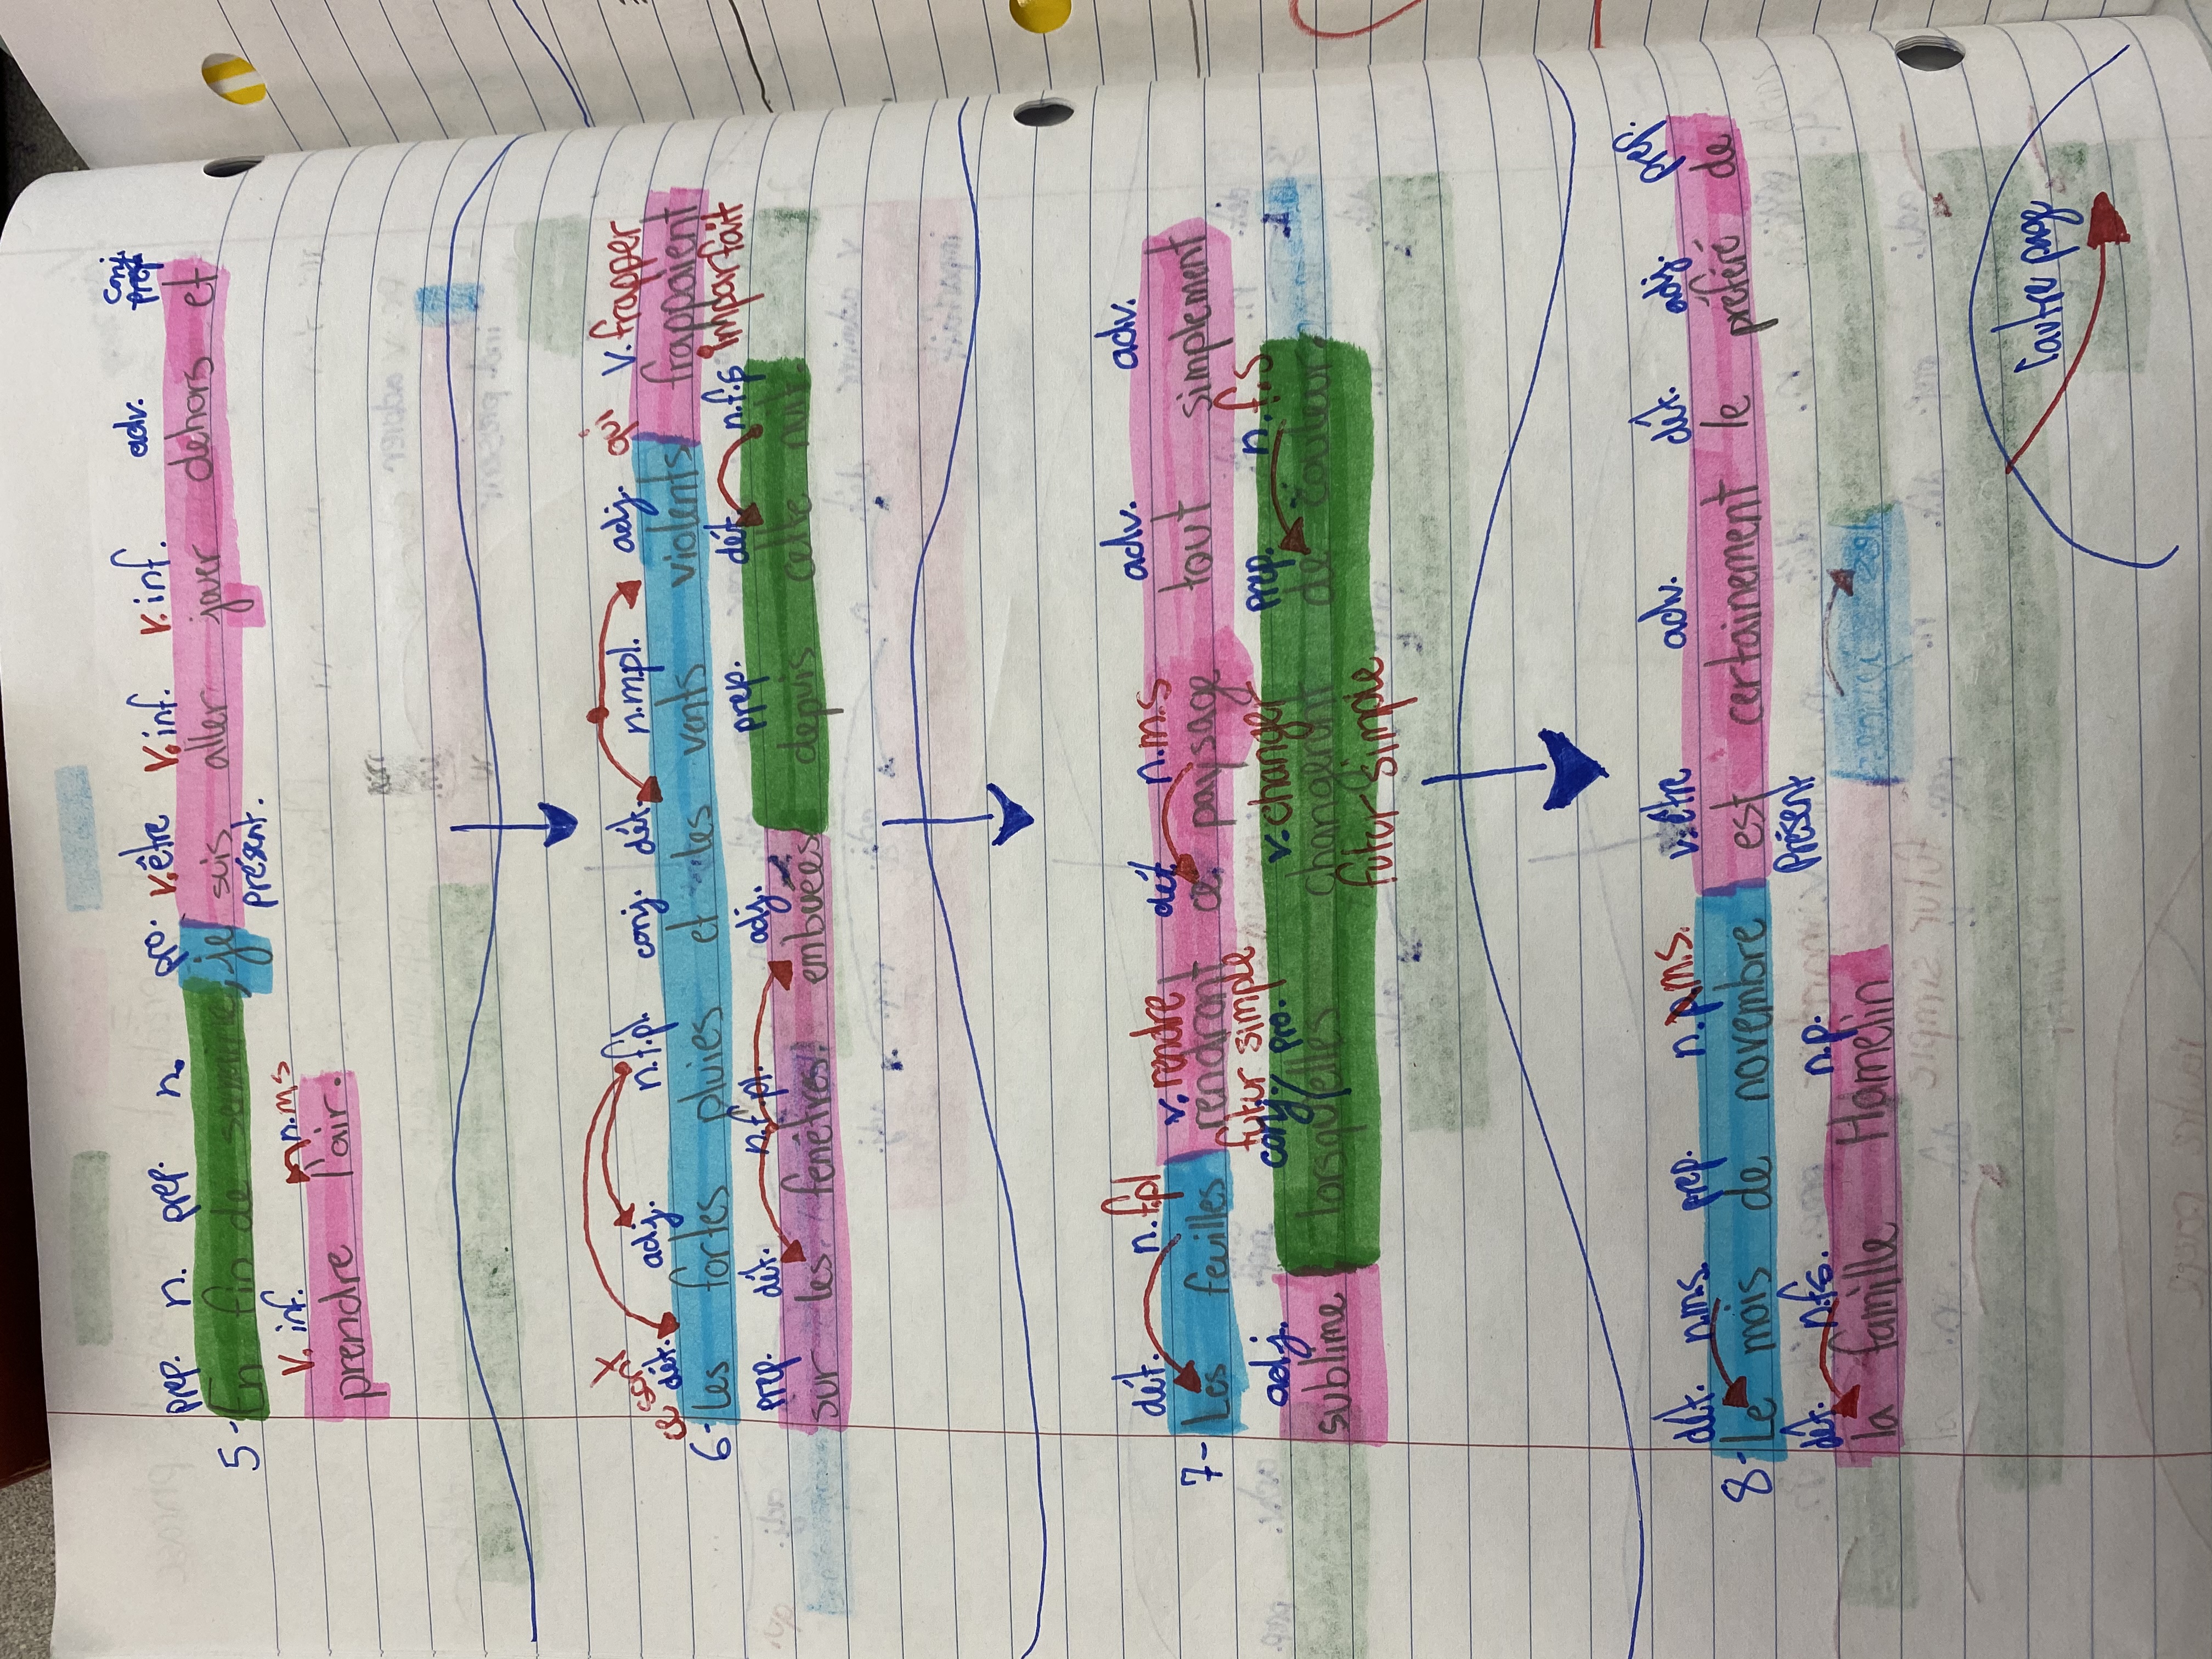 prep. n. prep. n. pro. v. être v. inf. v. inf. adv. conj
5- En fin de semaine, je suis aller jouer dehors et
présent.
v. inf. n.m.s
prendre l'air.
adj. qui v. frapper
dét. adj. n.f.pl. conj. dét. n.m.pl.
6- Les fortes pluies et les vents violents frappaient
imparfait
prep. dét. n.f.pl. adj. prep. dét n.f.s
sur les fenêtres embuées depuis cette nuit.
dét. n.f.pl v. rendre dét n.m.s adv. adv.
7- Les feuilles rendront ce paysage tout simplement
futur simple
adj. conj/ pro. v. changer prep. n.f.s
sublime lorsqu'elles changeront de couleur.
futur simple
dét. n.m.s. prep. n.p.m.s. v. être adv. dét. adj.
8- Le mois de novembre est certainement le préféré de
Présent
dét. n.f.s. n.p.
la famille Hamelin
l'autre page